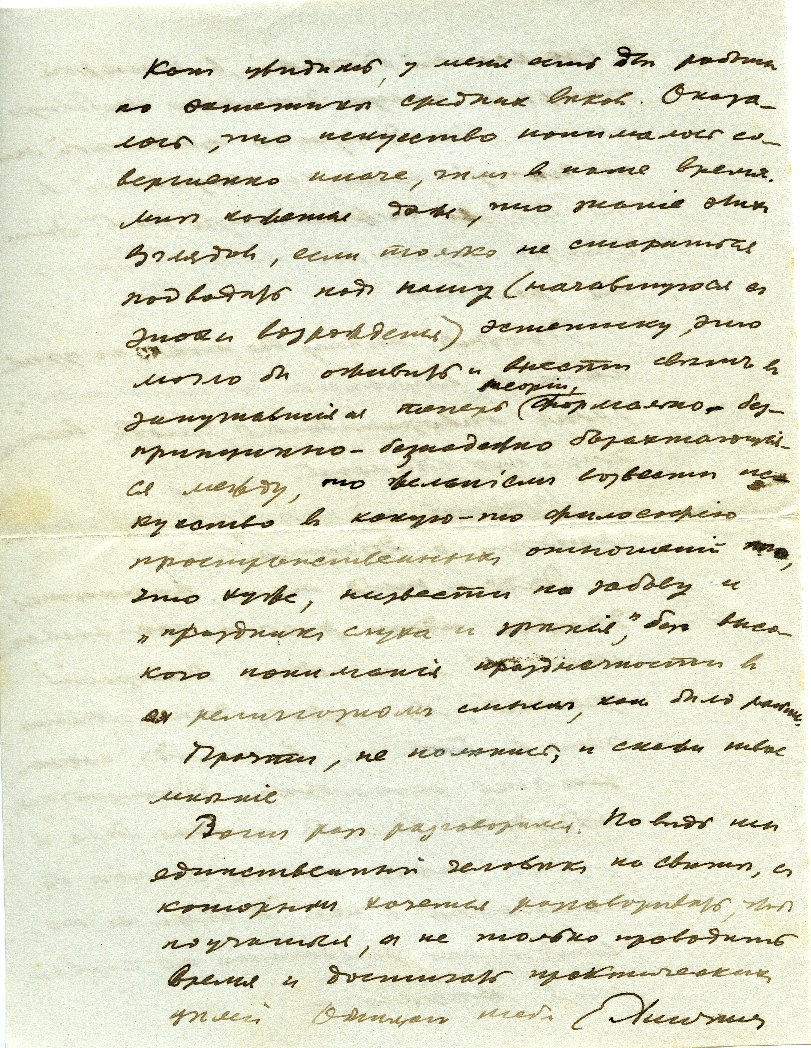 Какъ увидишь, у меня есть двѣ работы
по эстетикѣ среднихъ вѣковъ. Оказа-
лось, что искусство понималось со-
вершенно иначе, чѣмъ въ наше время.
Мнѣ кажется даже, что знаніе этихъ
взглядовъ, если только не стараться
подводить подъ нашу (начавшуюся съ
эпохи возрожденья) эстетику, это
могло бы оживить и внести свѣтъ въ
запутавшіяся теперь теоріи, (формально-без-
принципно-безнадежно барахтающія-
ся между, то желаніемъ возвести ис-
кусство въ какую-то философію
пространственныхъ отношеній,
что хуже, низвести на забаву и
„праздникъ слуха и зрѣнія“, безъ высо-
каго пониманія праздничности въ
ея религіозномъ смыслѣ, какъ было раньше.
Прочти, не полѣнись, и скажи твое
мнѣніе
разъ разговорился. Но вѣдь ты
единственный человѣкъ на свѣтѣ, съ
которымъ хочется разговаривать,
поучаться, а не только проводить
время и достигать практическихъ
цѣлей Обнимаю тебя